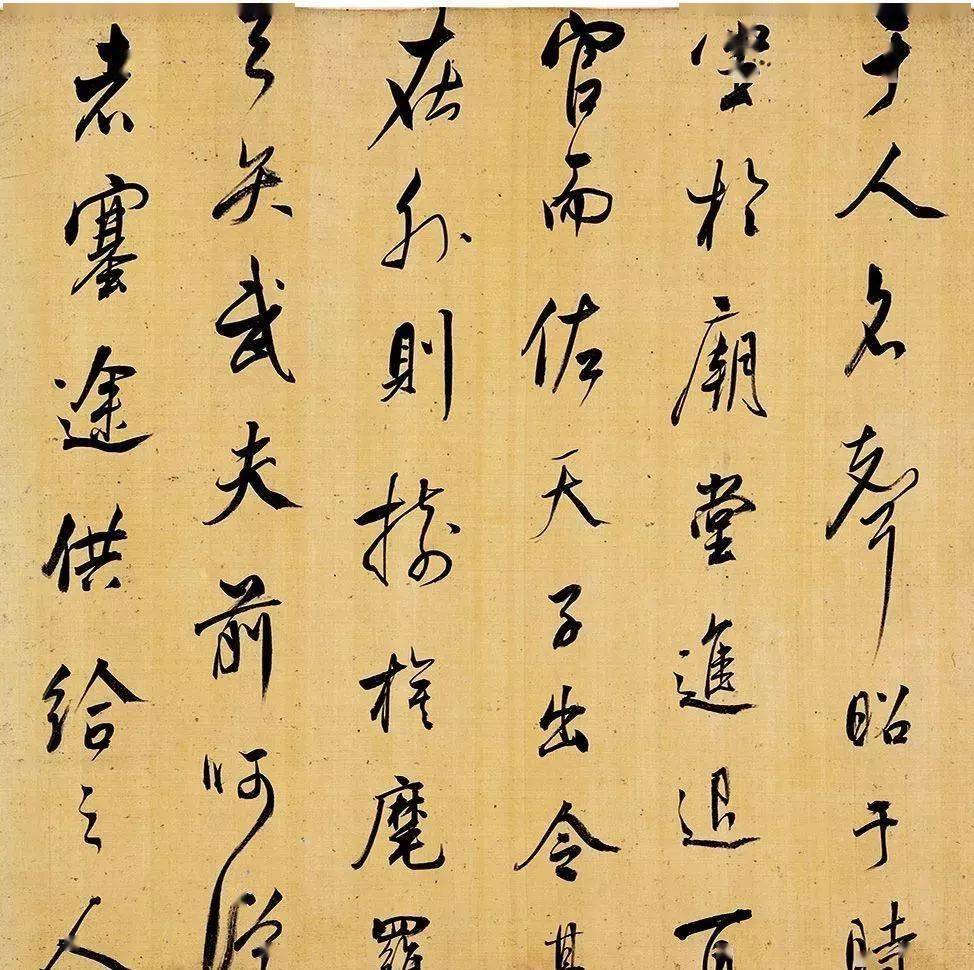 于人名聲昭于時
坐於廟堂進退百
官而佐天子出令其
在外則樹旌麾羅
弓矢武夫前呵從
者塞途供給之人